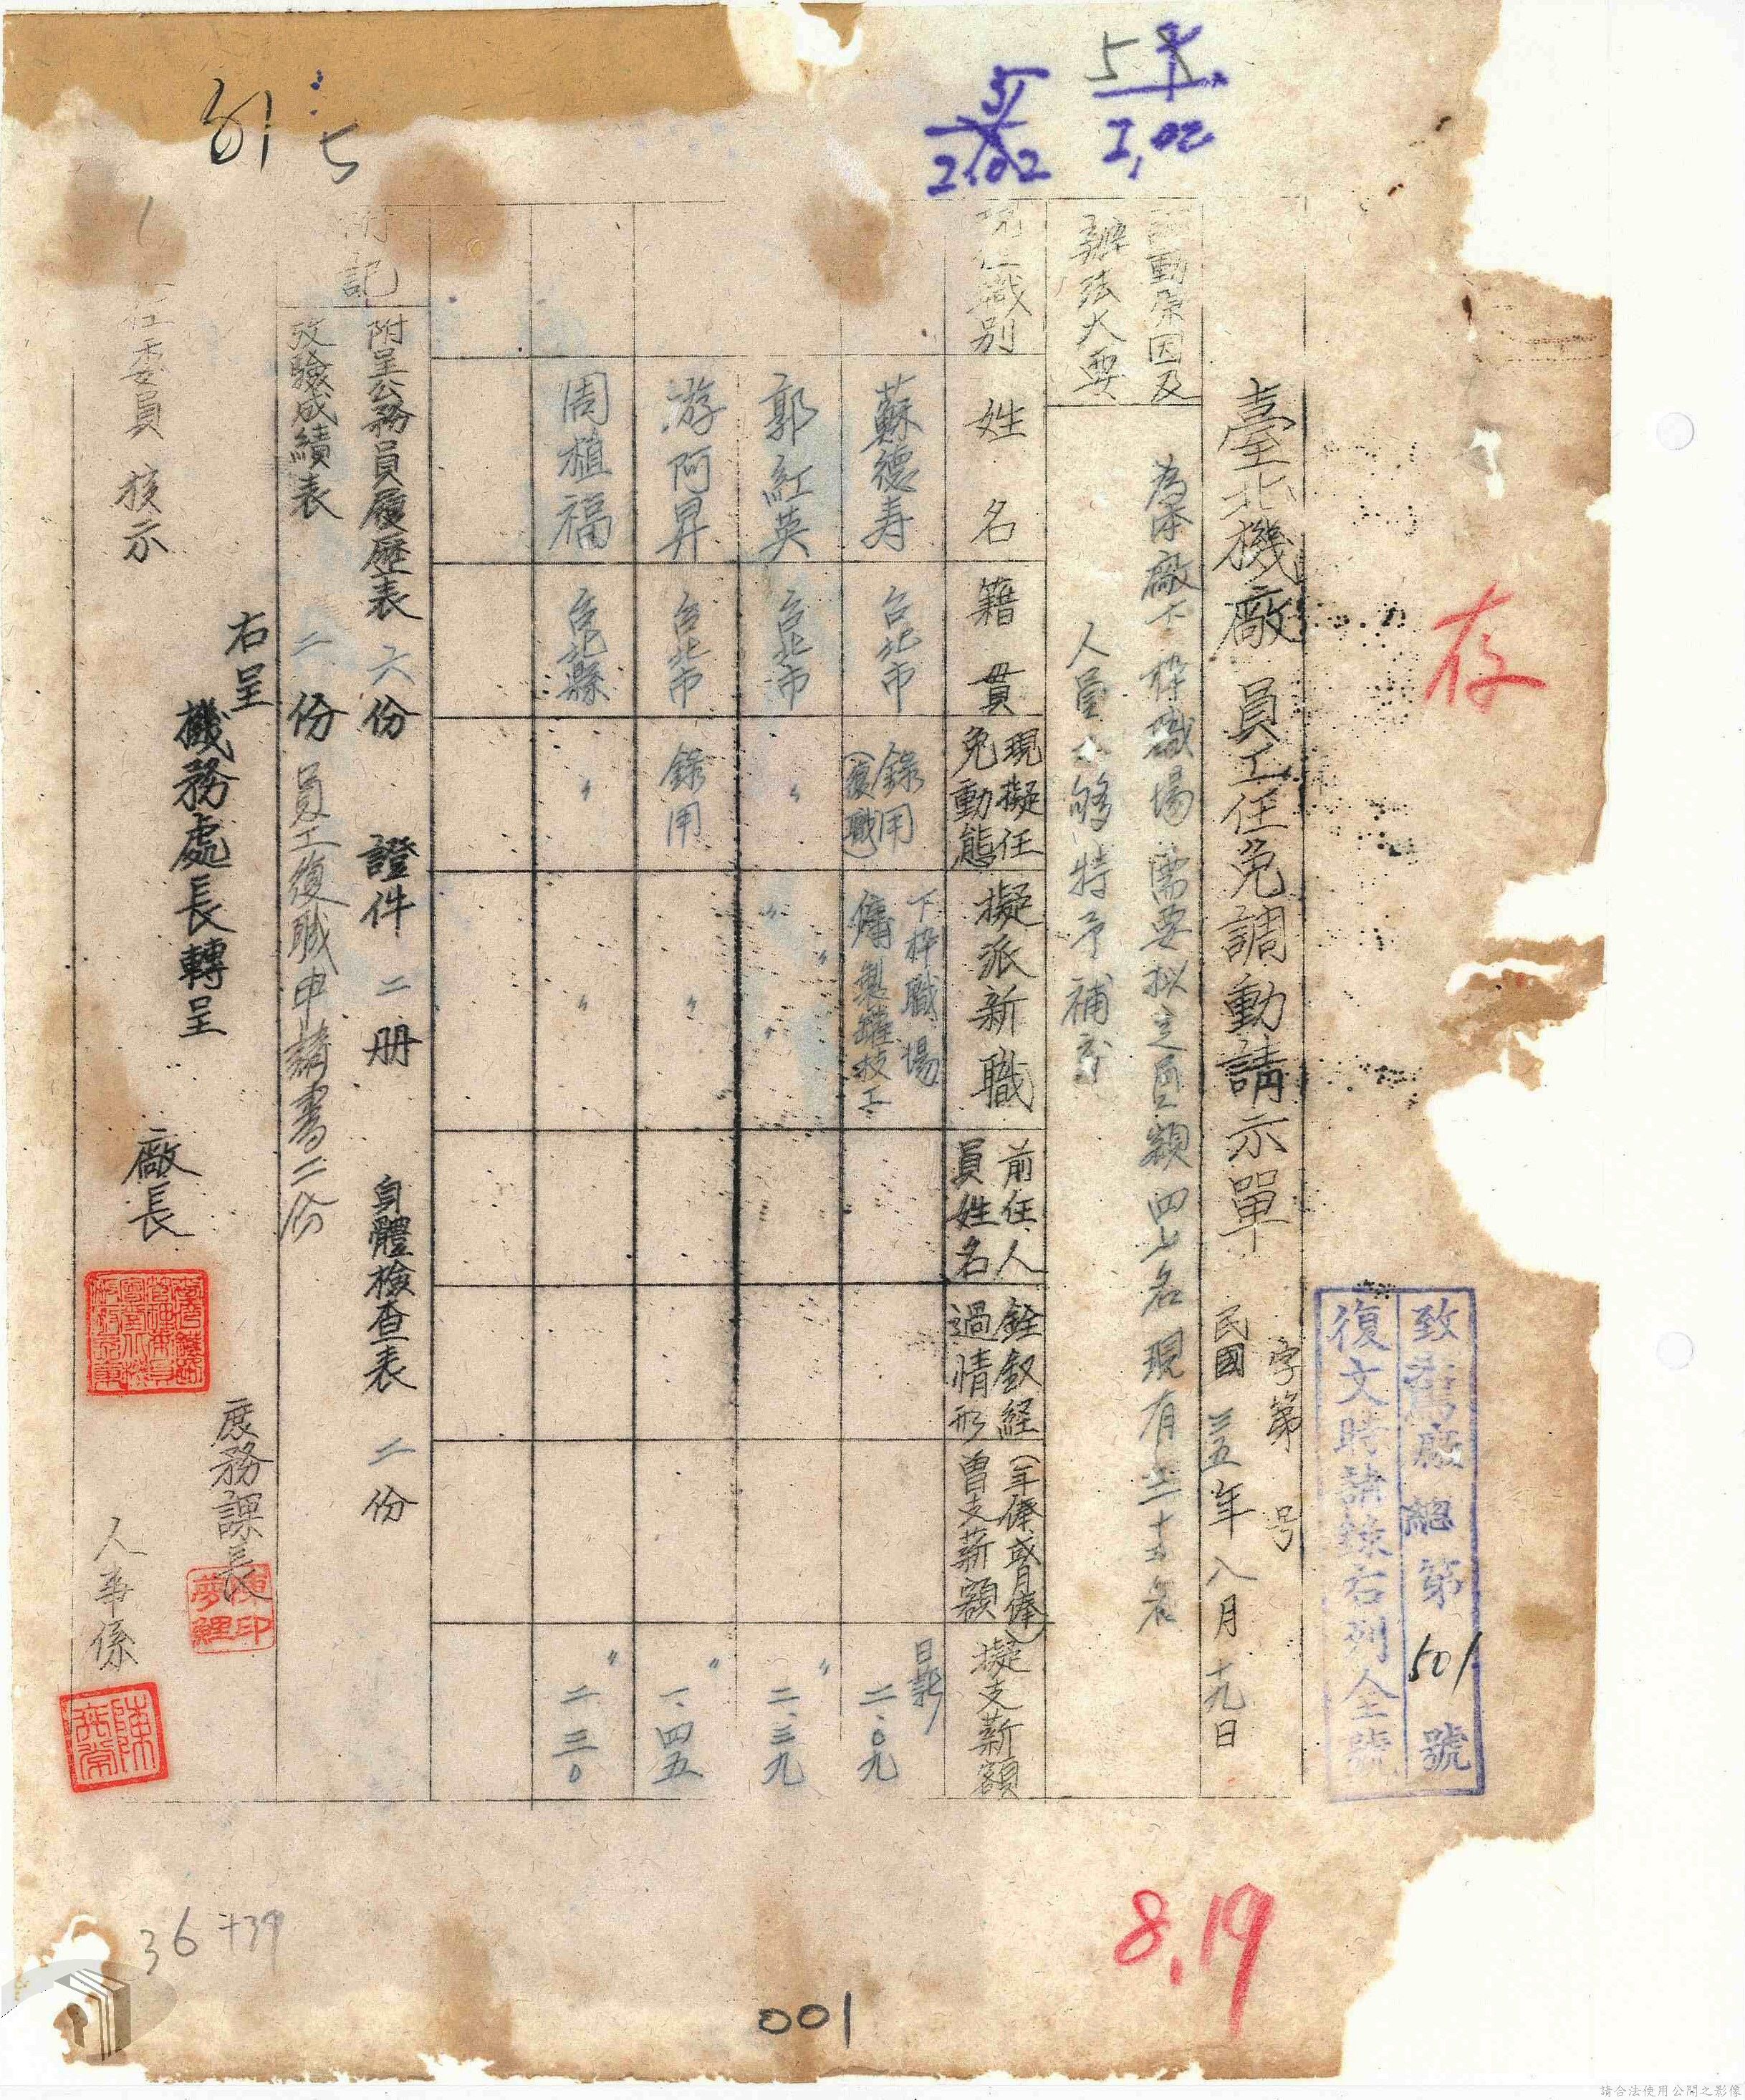 存
致舊廠總第501號
復文時請錄右列全號
字第 号
臺北機廠員工任免調動請示單 民國 三五年 八月 十九日
調動原因及
辦法大要
為本廠下枠職場需要拟定員額四七名現有三十五名
人員不够特予補充
現任職別
姓名
籍貫
現擬任
免動態
擬派新職
前任人
員姓名
銓敘経
過情形
(年俸或月俸)
曾支薪額
擬支薪額
蘇德寿 台北市 錄用(復職) 下枠職場 傭製罐技工 日薪 二.〇九
郭紅英 台北市 〃 〃 〃 二.三九
游阿昇 台北市 錄用 〃 〃 一.四五
周植福 台北縣 〃 〃 〃 二.三〇
附記
附呈公務員履歷表 六份 證件 二册 身體檢查表 二份
攷驗成績表 二份 員工復職申請書二份
右呈
機務處長轉呈
任委員 核示
廠長
庶務課長
陳印夢鯉
人事係
8.19
51
2.02
2,02
5
36+39
001
請合法使用公開之影像